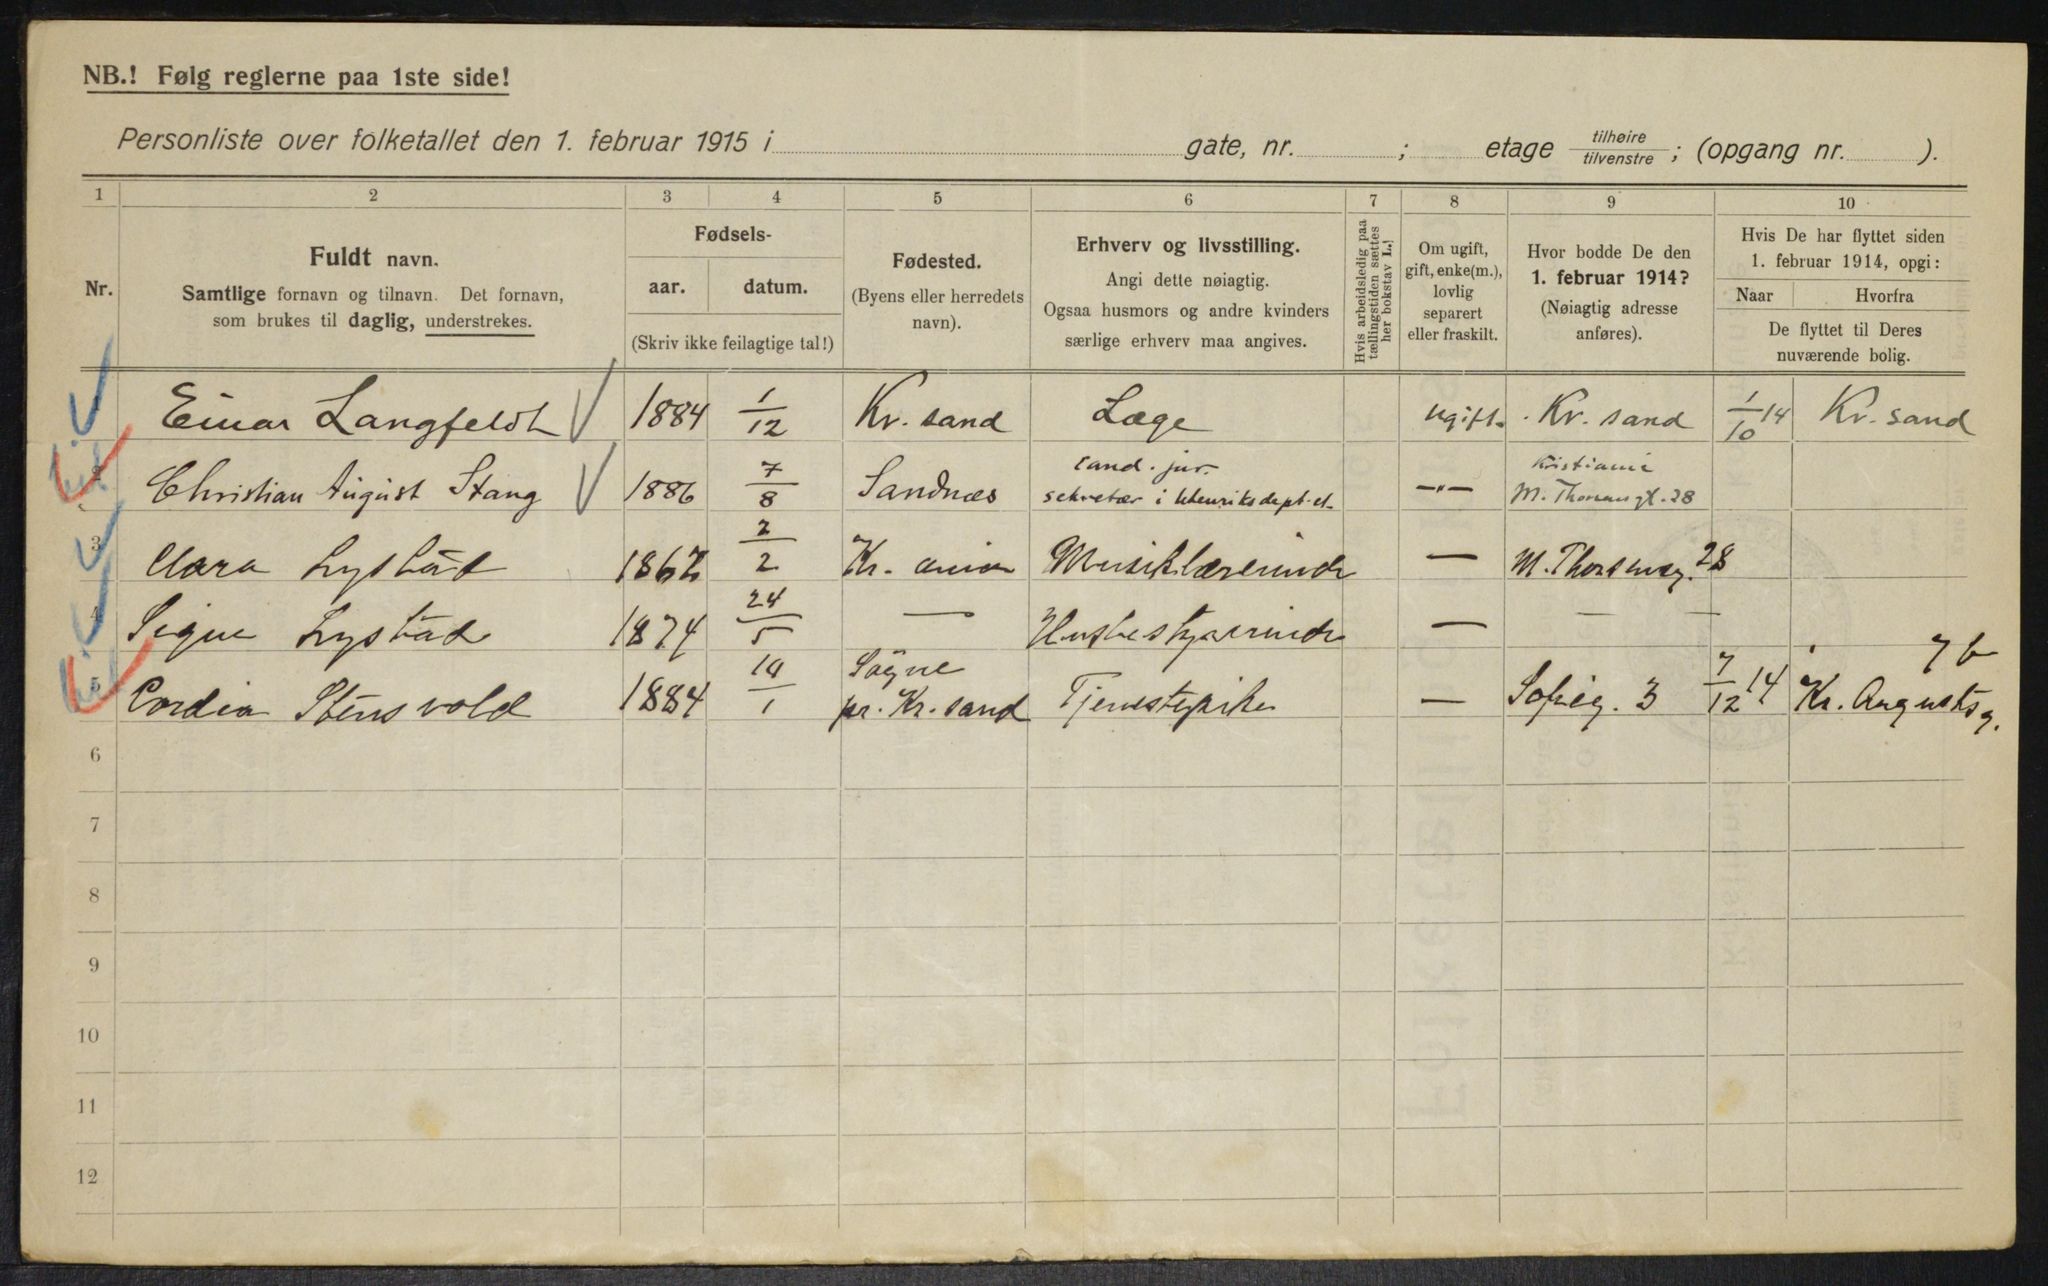 NB.! Følg reglerne paa 1ste side!
Personliste over folketallet den 1. februar 1915 i gate, nr. ; etage tilhøire tilvenstre ; (opgang nr. ).
1 2 3 4 5 6 7 8 9 10
Nr.
Fuldt navn.
Samtlige fornavn og tilnavn. Det fornavn,
som brukes til daglig, understrekes.
Fødsels-
aar. datum.
(Skriv ikke feilagtige tal!)
Fødested.
(Byens eller herredets
navn).
Erhverv og livsstilling.
Angi dette nøiagtig.
Ogsaa husmors og andre kvinders
særlige erhverv maa angives.
Hvis arbeidsledig paa
tællingstiden sættes
her bokstav L.)
Om ugift,
gift, enke(m.),
lovlig
separert
eller fraskilt.
Hvor bodde De den
1. februar 1914?
(Nøiagtig adresse
anføres).
Hvis De har flyttet siden
1. februar 1914, opgi:
Naar Hvorfra
De flyttet til Deres
nuværende bolig.
Einar Langfeldt 1884 1/12 Kr. sand Læge ugift. Kr. sand 1/10 14 Kr. sand
2 Christian August Stang 1886 7/8 Sandnæs cand. jur. sekretær i —"— Kristiania M. Thorsensgt. 28
3 Clara Lystad 1867 2/2 Kr. ania Musiklærerinde — M. Thorsensg. 28
4 Signe Lystad 1874 24/5 — Husbestyrerinde — — —
5 Cordia Stensvold 1884 10/1 Søgne pr. Kr. sand Tjenestepike — Sofieg. 3 7/12 14 Kr. Augustsg. 7 b
6
7
8
9
10
11
12